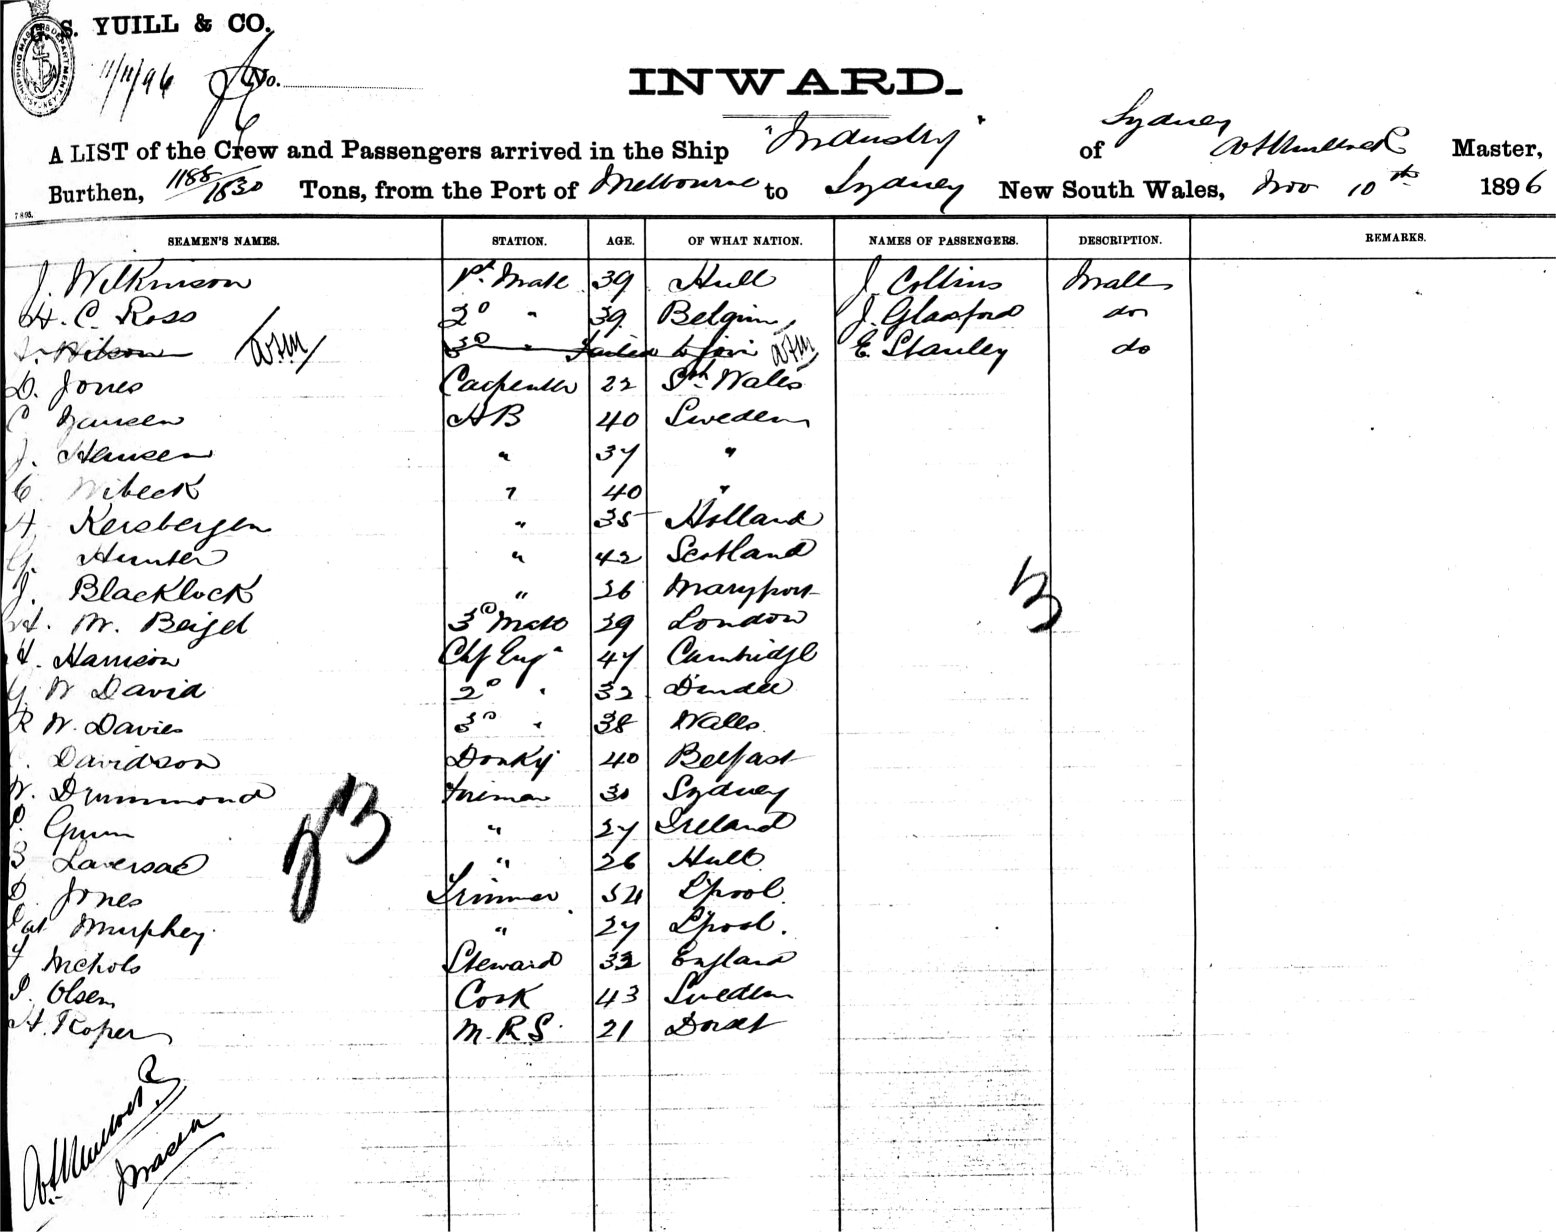 G. S. YUILL & CO.
11/11/96 No.
INWARD.
A LIST of the Crew and Passengers arrived in the Ship "Industry" of Sydney Master,
Burthen, 1188/1830 Tons, from the Port of Melbourne to Sydney New South Wales, Nov 10th 1896
7 8 95.
SEAMEN'S NAMES. STATION. AGE. OF WHAT NATION. NAMES OF PASSENGERS. DESCRIPTION. REMARKS.
J. Wilkinson 1st Mate 39 Hull J. Collins Male
H. C. Ross 2D " 39 Belgium J. Glasford do
J. Wilson 3D " Failed to join E. Stanley do
D. Jones Carpenter 22 Sth Wales
C Jansen AB 40 Sweden
J. Hansen " 37 "
C. Wibeck " 40 "
A Kersbergen " 35 Holland
G. Hunter " 42 Scotland
J. Blacklock " 26 Maryport
H. M. Beigel 3D Mate 29 London
H. Harrison Chf Engr 47 Cambridge
G W David 2D " 32 Dundee
R W. Davies 3D " 38 Wales
Davidson Donky 40 Belfast
W. Drummond Fireman 30 Sydney
P. Gunn " 27 Ireland
Laversae " 26 Hull
D. Jones Trimmer 34 L'pool
Pat Murphey " 27 L'pool.
Nichols Steward 32 England
P. Olsen Cook 43 Sweden
H. Roper M.R.S. 21 Dorset
23
3
Master